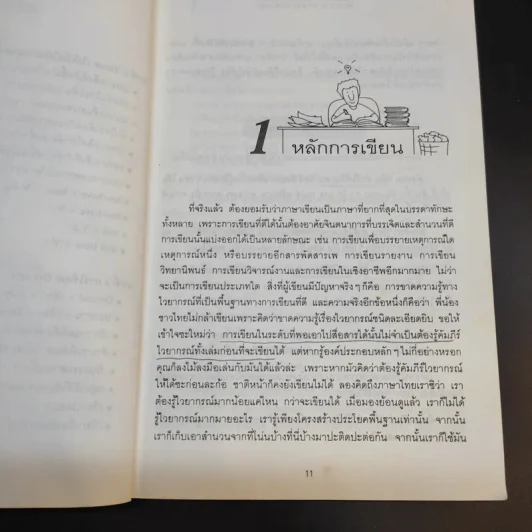 1
หลักการเขียน
ที่จริงแล้ว ต้องยอมรับว่าภาษาเขียนเป็นภาษาที่ยากที่สุดในบรรดาทักษะ
ทั้งหลาย เพราะการเขียนที่ดีได้นั้นต้องอาศัยจินตนาการที่บรรเจิดและสำนวนที่ดี
การเขียนนั้นแบ่งออกได้เป็นหลายลักษณะ เช่น การเขียนเพื่อบรรยายเหตุการณ์ใด
เหตุการณ์หนึ่ง หรือบรรยายเอกสารพัดสารเพ การเขียนรายงาน การเขียน
วิทยานิพนธ์ การเขียนวิจารณ์งานและการเขียนในเชิงอาชีพอีกมากมาย ไม่ว่า
จะเป็นการเขียนประเภทใด สิ่งที่ผู้เขียนมีปัญหาจริงๆ ก็คือ การขาดความรู้ทาง
ไวยากรณ์ที่เป็นพื้นฐานทางการเขียนที่ดี และความจริงอีกข้อหนึ่งก็คือว่า พี่น้อง
ชาวไทยไม่กล้าเขียนเพราะคิดว่าขาดความรู้เรื่องไวยากรณ์ชนิดละเอียดยิบ ขอให้
เข้าใจซะใหม่ว่า การเขียนในระดับที่พอเอาไปสื่อสารได้นั้นไม่จำเป็นต้องรู้คัมภีร์
ไวยากรณ์ทั้งเล่มก่อนที่จะเขียนได้ แต่หากรู้องค์ประกอบหลักๆ ไม่กี่อย่างหรอก
คุณก็ลงไม้ลงมือเล่นกับมันได้แล้วล่ะ เพราะหากมัวคิดว่าต้องรู้คัมภีร์ไวยากรณ์
ให้ได้ซะก่อนละก้อ ชาติหน้าก็คงยังเขียนไม่ได้ ลองคิดถึงภาษาไทยเราซิว่า เรา
ต้องรู้ไวยากรณ์มากน้อยแค่ไหน กว่าจะเขียนได้ เมื่อมองย้อนดูแล้ว เราก็ไม่ได้
รู้ไวยากรณ์มากมายอะไร เรารู้เพียงโครงสร้างประโยคพื้นฐานเท่านั้น จากนั้น
เราก็เก็บเอาสำนวนจากที่โน่นบ้างที่นี่บ้างมาปะติดปะต่อกัน จากนั้นเราก็ใช้มัน
11